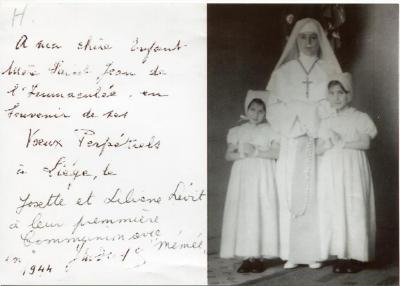 H
A ma chère Enfant
Mère Saint Jean de
l'Immaculée, en
Souvenir de ses
Vœux Perpétuels
à Liége, le
Josette et Liliane Lévit
à leur première
Communion avec
en Mémée
1944